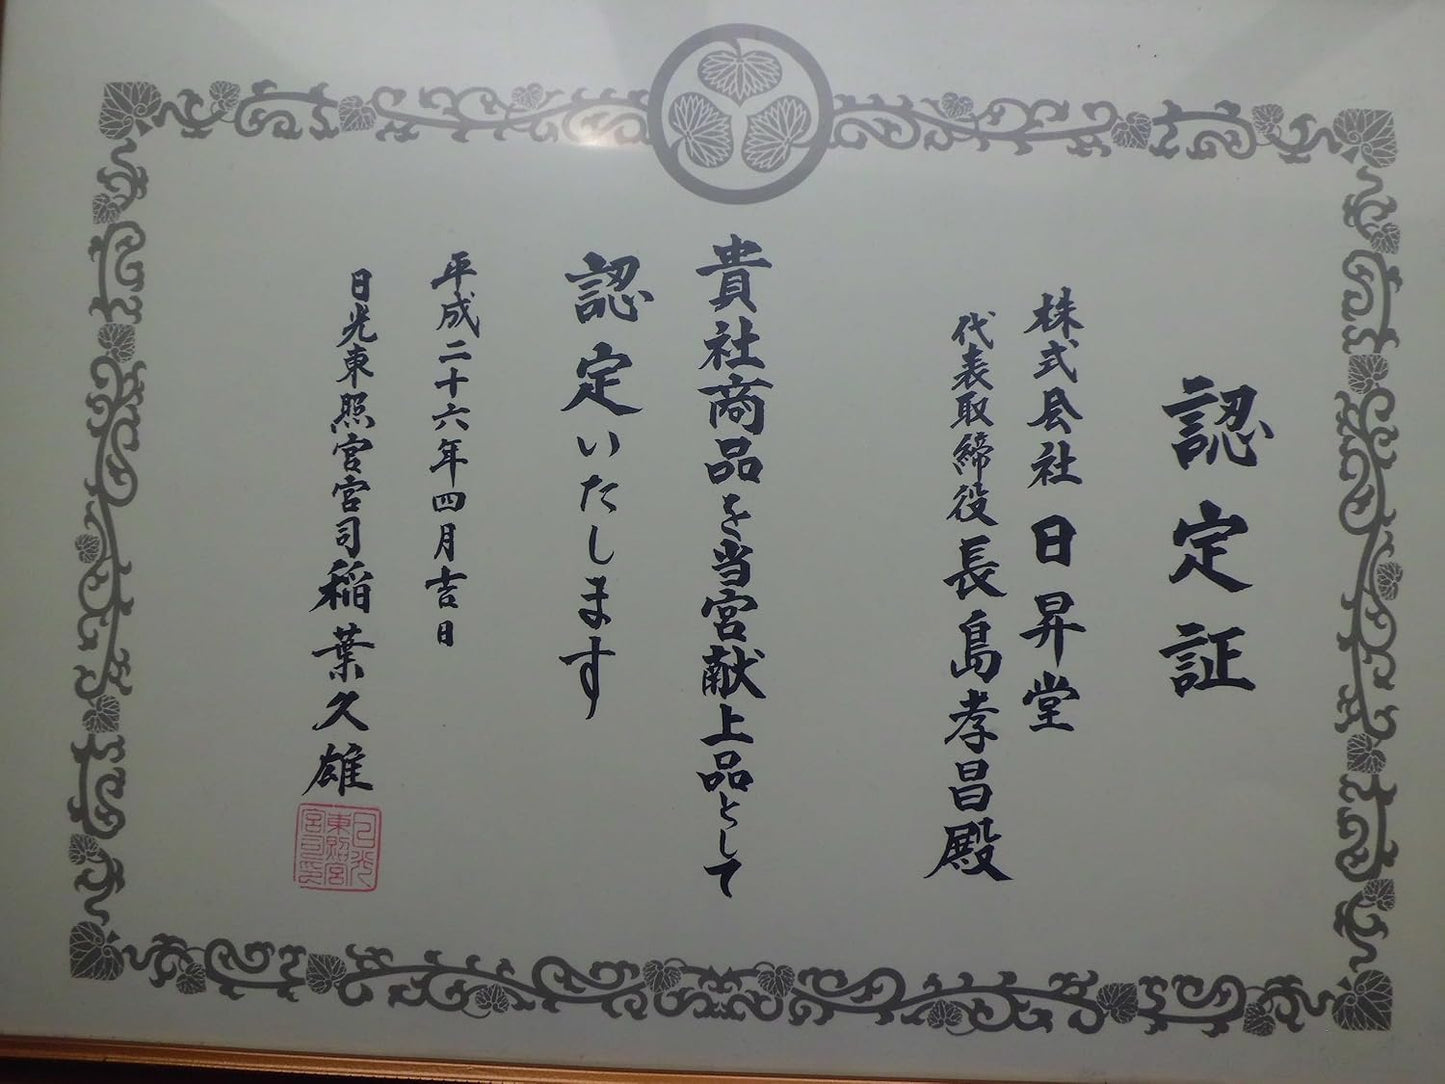 認定証
株式会社 日昇堂
代表取締役 長島孝昌殿
貴社商品を当宮献上品として
認定いたします
平成二十六年四月吉日
日光東照宮宮司 稲葉久雄
日光
東照宮
宮司印